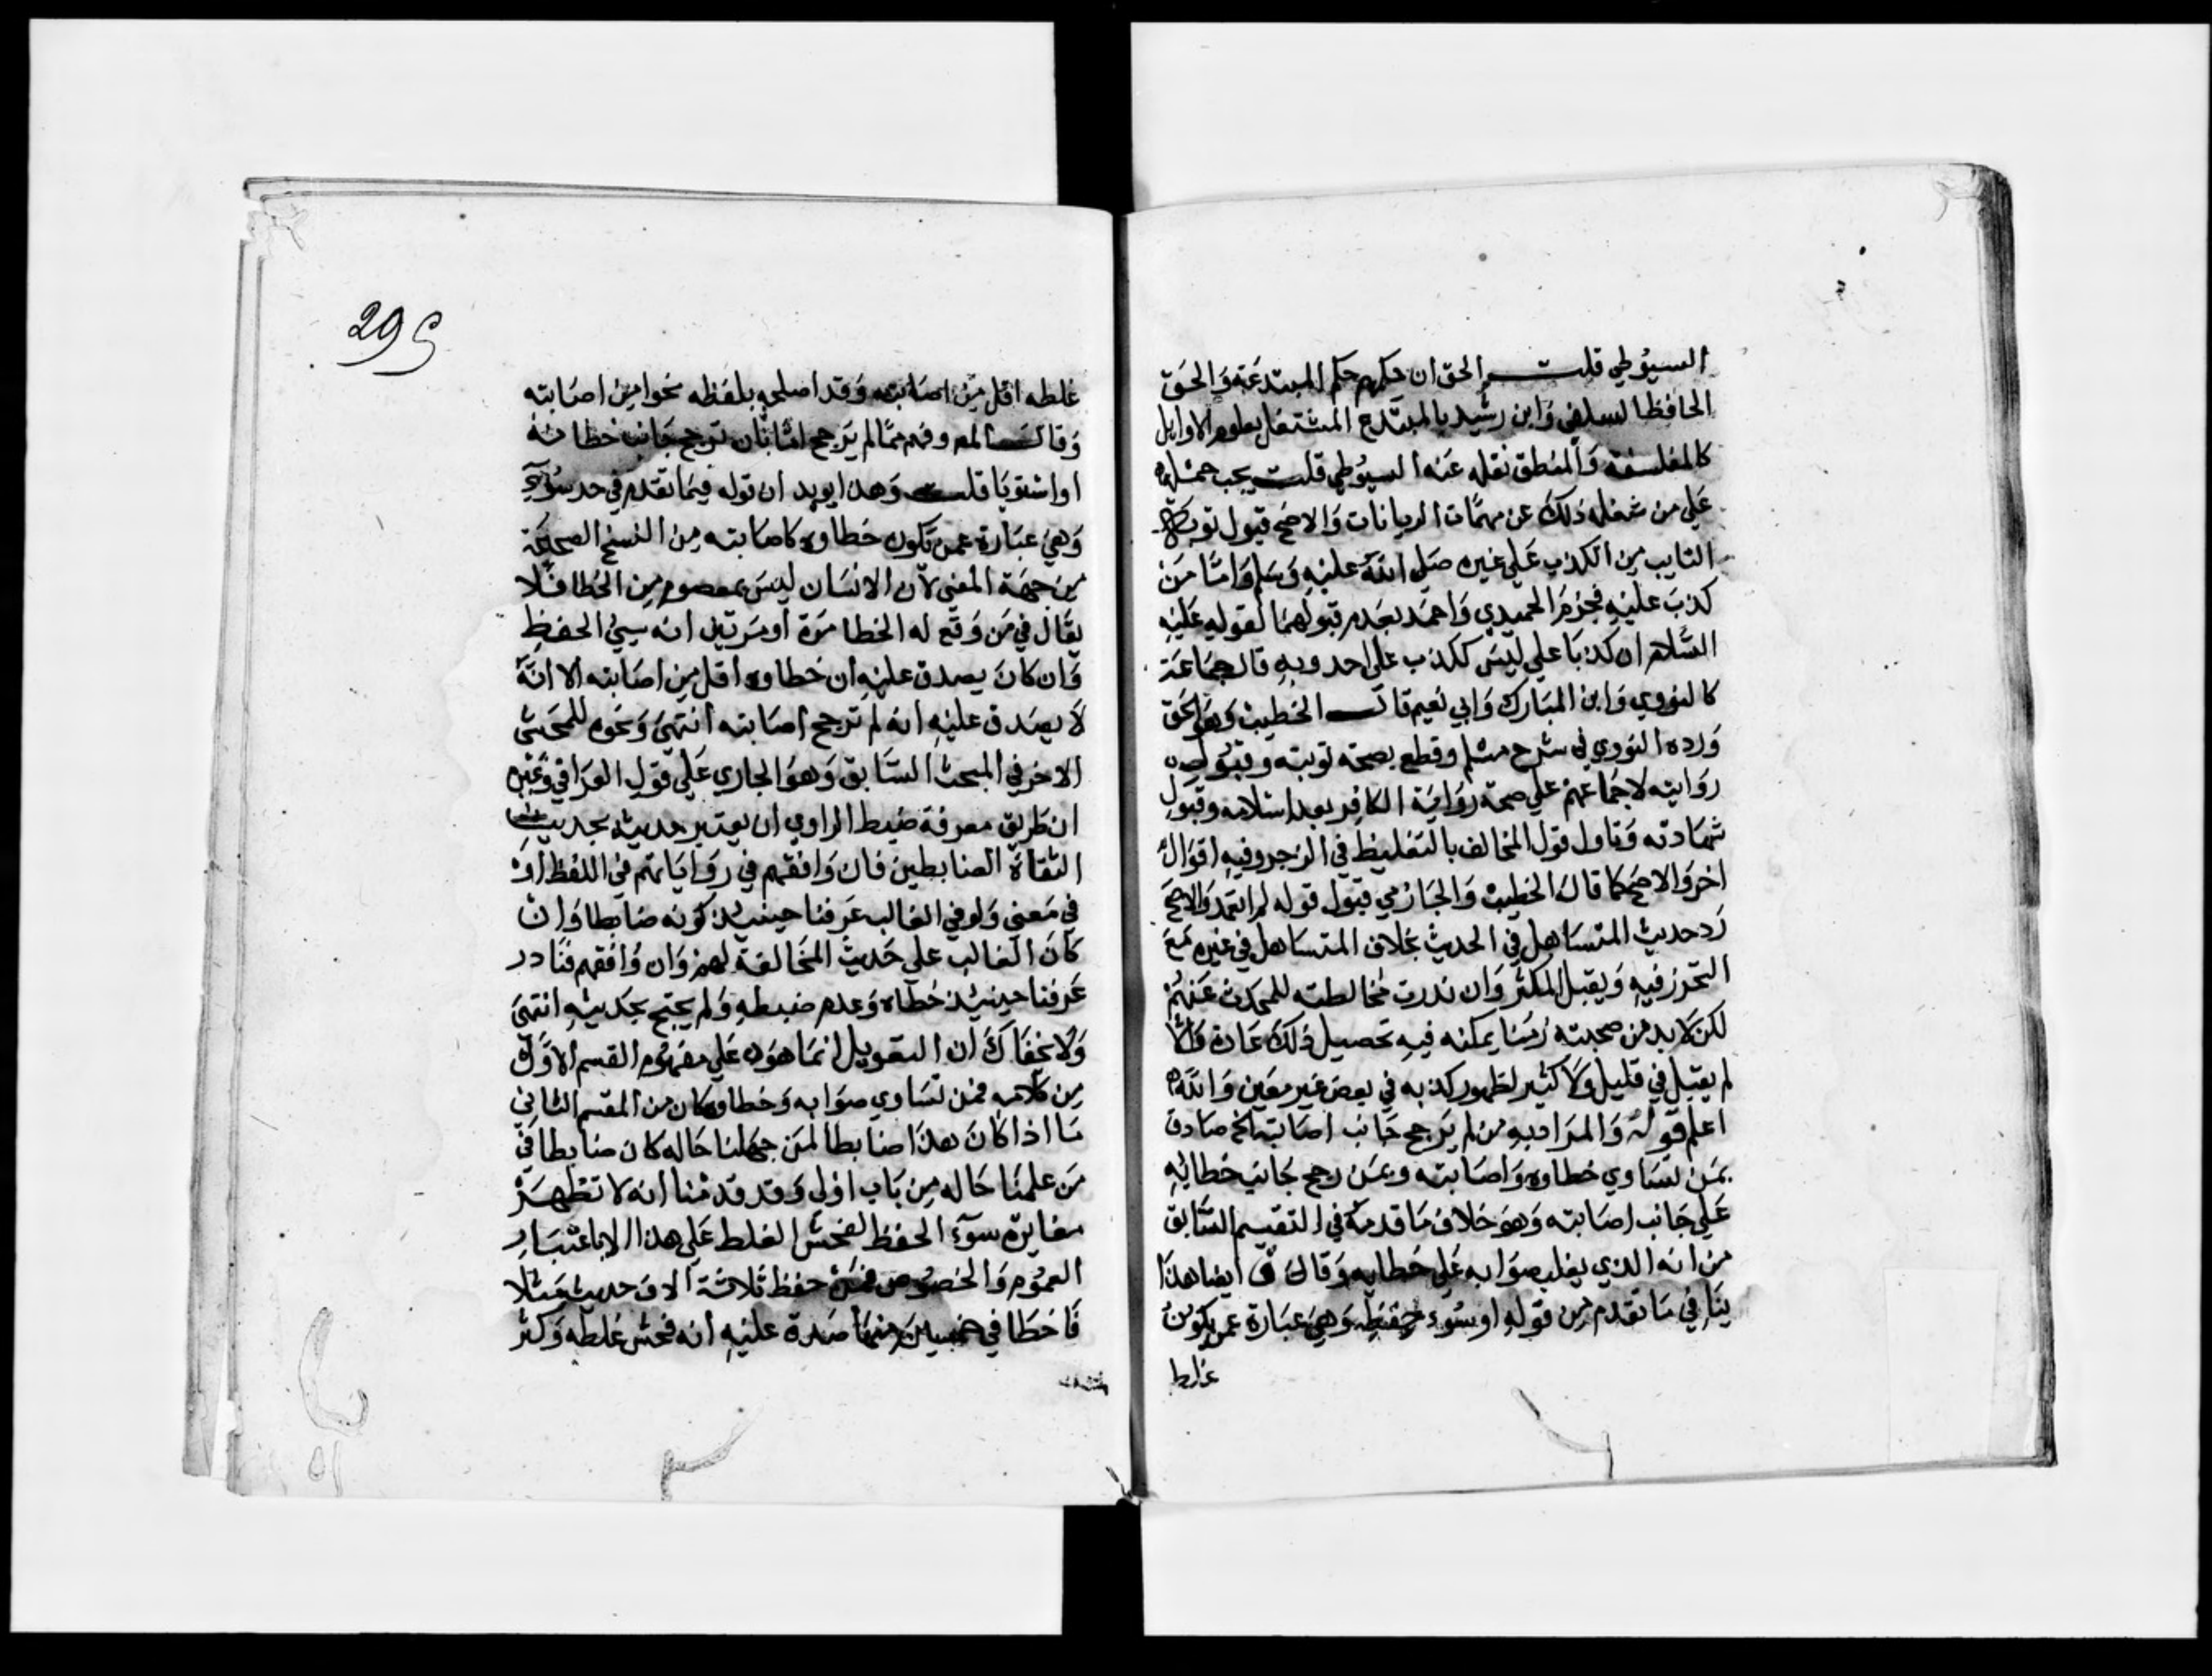 السيوطي قلت الحق ان حكمهم حكم المبتدعة والحق
الحافظ السلفي وابن رشيد بالمبتدع المشتغل بعلوم الاوايل
كالفلسفة والمنطق نقله عنه السيوطي قلت يجب
علي من شغله ذلك عن مهمات الديانات والاصح قبول توبة
التايب من الكذب علي غيره صلي الله عليه وسلم واما من
كذب عليه فجزم الحميدي واحمد بعدم قبولهما لقوله عليه
السلام ان كذبا علي ليس ككذب علي احد وبه قال جماعة
كالنووي وابن المبارك وابي نعيم قال الخطيب وهو الحق
ورده النووي في شرح مسلم وقطع بصحة توبته وقبول
روايته لاجماعهم علي صحة رواية الكافر بعد اسلامه وقبول
شهادته وتاول قول المخالف بالتغليظ في الزجر وفيه اقوال
اخر والاصح كما قال الخطيب والحازمي قبول قوله لم اتعمد والاصح
رد حديث المتساهل في الحديث بخلاف المتساهل في غيره مع
التحرز فيه ويقبل المكثر وان ندرت مخالطته للمحدث عنهم
لكن لا بد من صحبته زمنا يمكنه فيه تحصيل ذلك عادة والا
لم يقبل في قليل ولا كثير لظهور كذبه في بعض غير معين والله
اعلم قوله والمراد به من لم يرجح جانب اصابته الخ صادق
بمن تساوي خطاوه واصابته وبمن رجح جانب خطائه
علي جانب اصابته وهو خلاف ما قدمه في التقسيم السابق
من انه الذي يغلب صوابه علي خطايه وقال ق ايضا هذا
ينافي ما تقدم من قوله او سوء حفظه وهي عبارة عمن يكون
غلط
295
غلطه اقل من اصابته وقد اصلحه بلفظه نحوا من اصابته
وقال لمعروفه مما لم يرجح اما بان ترجح جانب خطائه
او استويا قلت وهذا يويد ان قوله فيما تقدم في حد سوء
وهي عبارة عمن يكون خطاوه كاصابته من النسخ الصحيحة
من جهة المعني لان الانسان ليس بمعصوم من الخطا فلا
يقال في من وقع له الخطا مرة او مرتين انه سيئ الحفظ
وان كان يصدق عليه ان خطاوه اقل من اصابته الا انه
لا يصدق عليه انه لم ترجح اصابته انتهي ونحوه للمحشي
الاخر في المبحث السابق وهو الجاري علي قول العراقي وغيره
ان طريق معرفة ضبط الراوي ان يعتبر حديثه بحديث
الثقاة الضابطين فان وافقهم في رواياتهم في اللفظ او
في معني ولو في الغالب عرفنا حينيذ كونه ضابطا وان
كان الغالب علي حديث المخالفة لهم وان وافقهم فنادر
عرفنا حينيذ خطاه وعدم ضبطه ولم يحتج بحديثه انتهي
ولا يخفاك ان التعويل انما هو علي مفهوم القسم الاول
من كلامه فمن تساوي صوابه وخطاوه كان من القسم الثاني
ما اذا كان هذا ضابطا لمن جهلنا حاله كان ضابطا في
من علمنا حاله من باب اولي وقد قدمنا انه لا تظهر
مغايرة سوء الحفظ لفحش الغلط علي هذا الا باعتبار
العموم والخصوص فمن حفظ ثلاثة الاف حديث مثلا
فاخطا في خمسين منها صدق عليه انه فحش غلطه وكثر